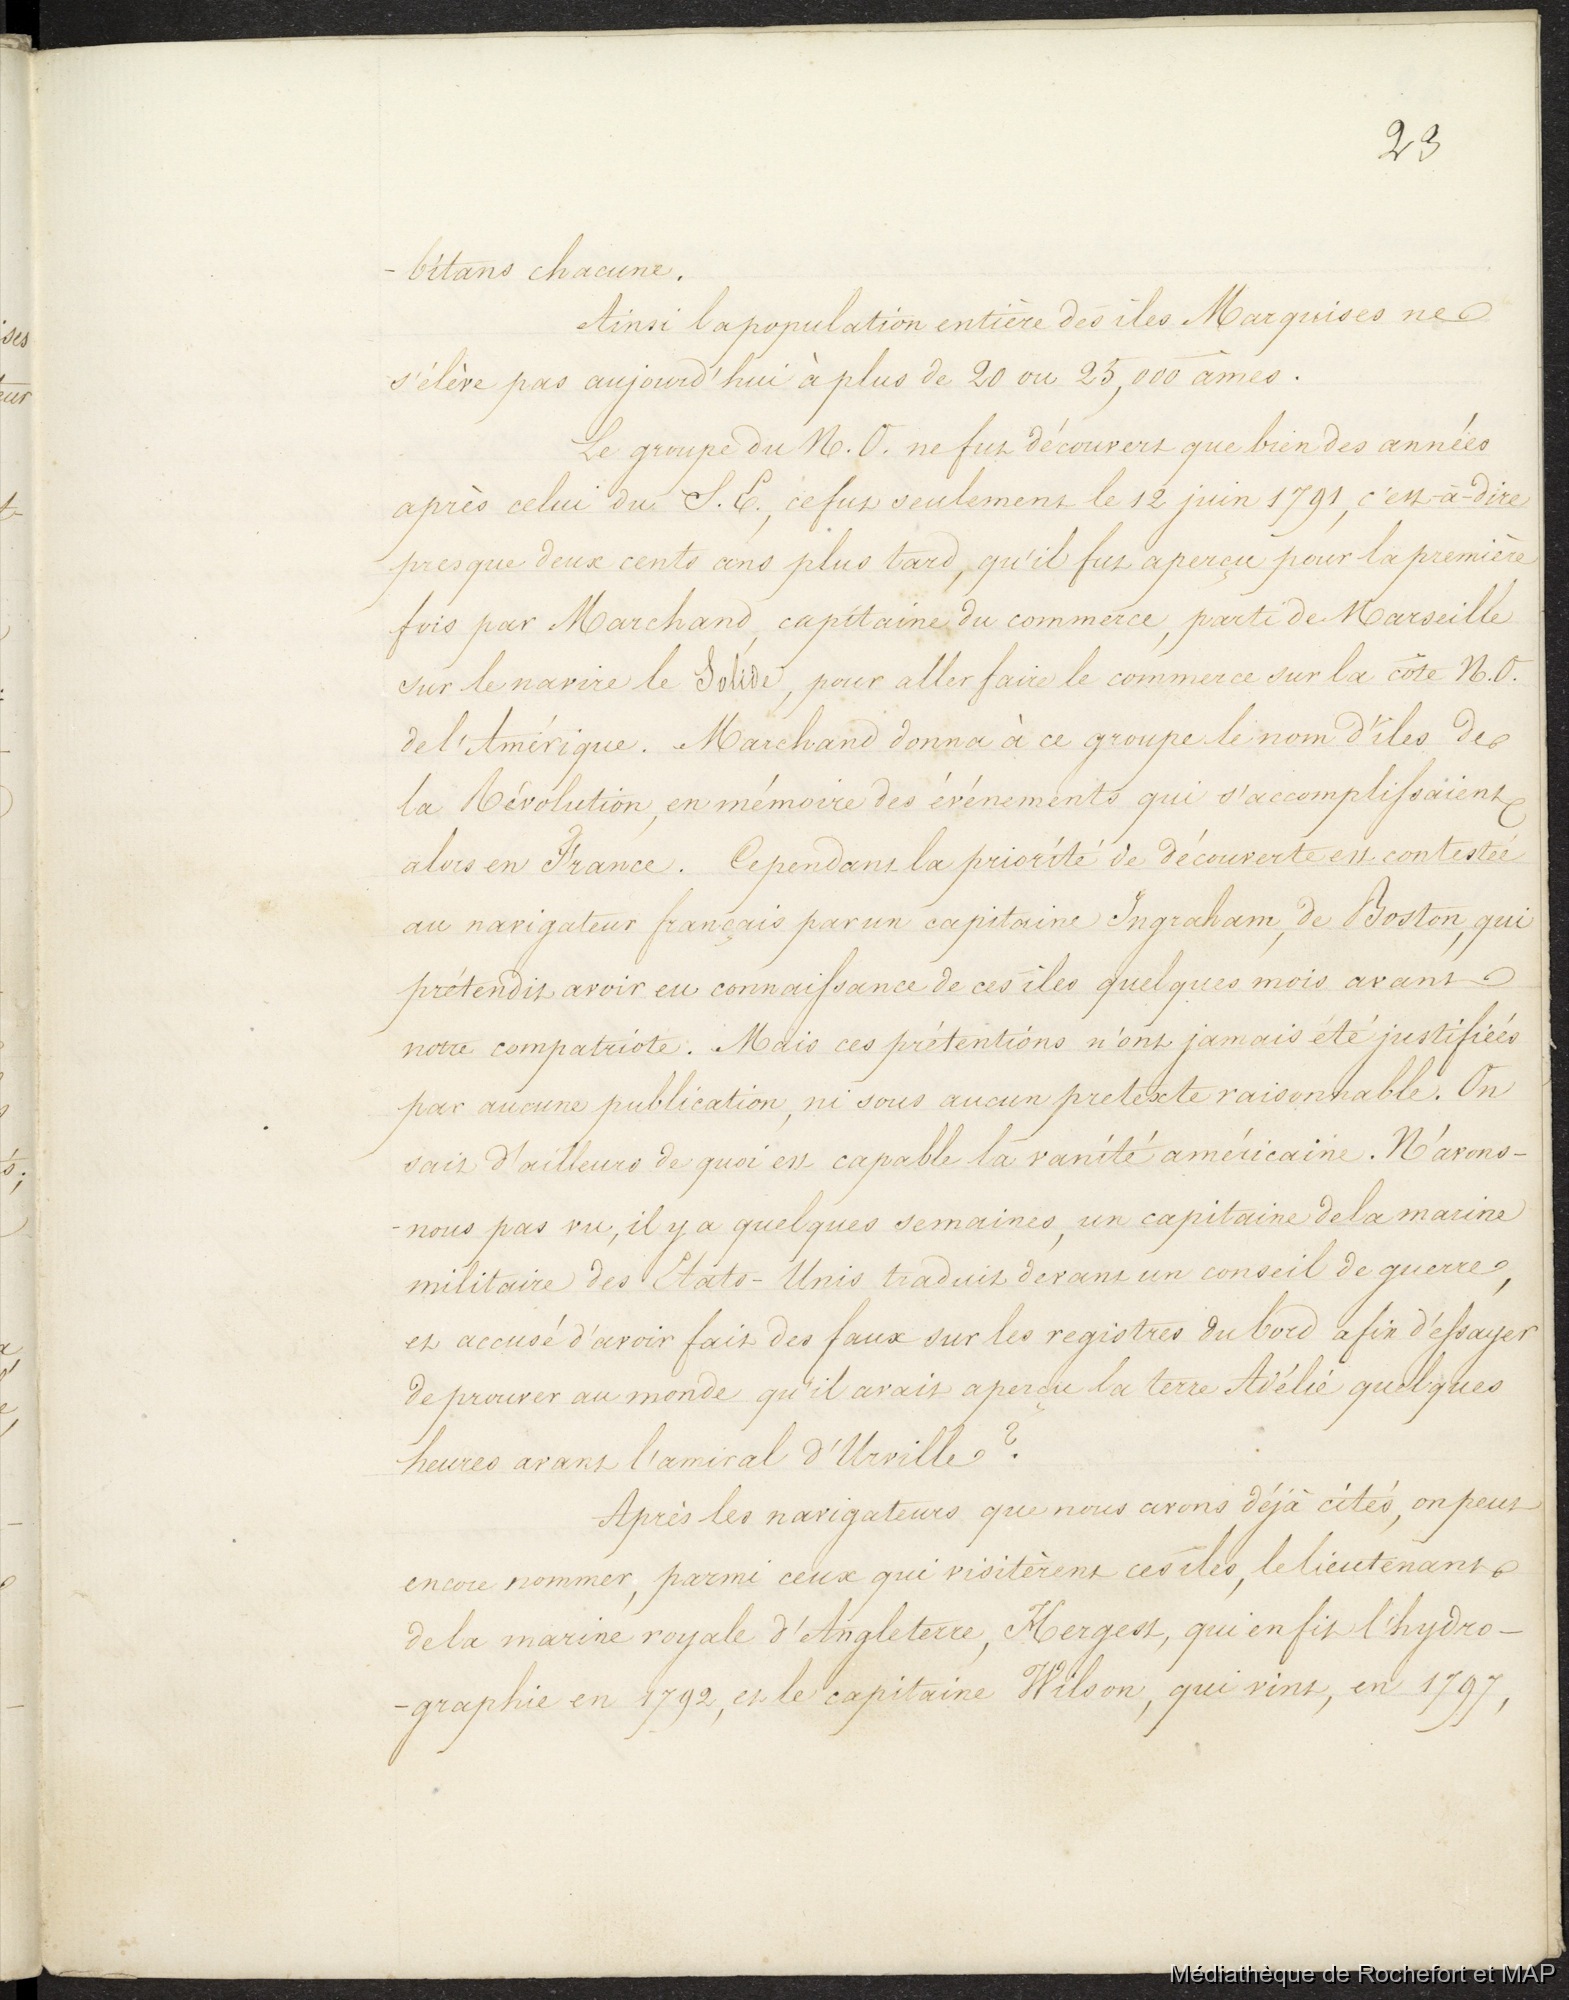 23
-bitans chacune.
Ainsi la population entière des îles Marquises ne
s'élève pas aujourd'hui à plus de 20 ou 25,000 âmes.
Le groupe du N. O. ne fut découvert que bien des années
après celui du S. E., ce fut seulement le 12 juin 1791, c'est-à-dire
presque deux cents ans plus tard, qu'il fut aperçu pour la première
fois par Marchand, capitaine du commerce, parti de Marseille
sur le navire le Solide, pour aller faire le commerce sur la côte N.O.
de l'Amérique. Marchand donna à ce groupe le nom d'îles de
la Révolution, en mémoire des événements qui s'accomplissaient
alors en France. Cependant la priorité de découverte est contestée
au navigateur français par un capitaine Ingraham, de Boston, qui
prétendit avoir eu connaissance de ces îles quelques mois avant
notre compatriote. Mais ces prétentions n'ont jamais été justifiées
par aucune publication, ni sous aucun pretexte raisonnable. On
sait d'ailleurs de quoi est capable la vanité américaine. N'avons-
-nous pas vu, il y a quelques semaines, un capitaine de la marine
militaire des Etats-Unis traduit devant un conseil de guerre,
et accusé d'avoir fait des faux sur les registres du bord afin d'essayer
de prouver au monde qu'il avait aperçu la terre Adélie quelques
heures avant l'amiral d'Urville ?.
Après les navigateurs que nous avons déjà cités, on peut
encore nommer, parmi ceux qui visitèrent ces îles, le lieutenant
de la marine royale d'Angleterre, Hergest, qui en fit l'hydro-
-graphie en 1792, et le capitaine Wilson, qui vint, en 1797,
Médiathèque de Rochefort et MAP